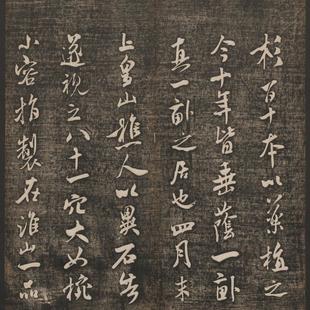 杉百千本以藥植之
今十年皆垂蔭一畝
真一畝之居也四月末
上皇山樵人以異石告
遂視之八十一穴大如椀
小容指製在淮山一品